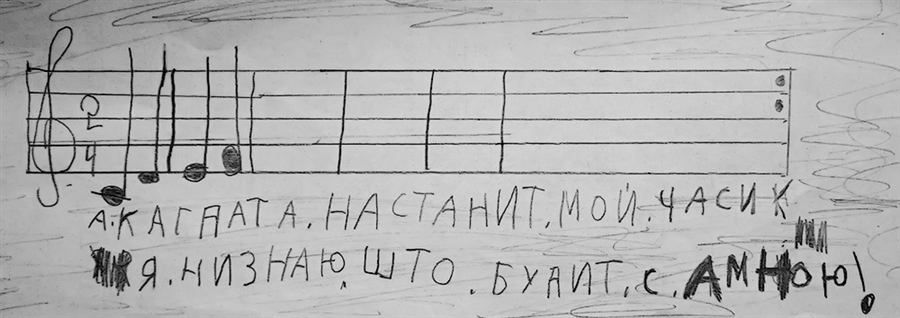 2
4
А.КАГДАТА.НАСТАНИТ.МОЙ.ЧАСИК
Я.НИЗНАЮ.ШТО.БУДИТ.С.АМНОЮ!